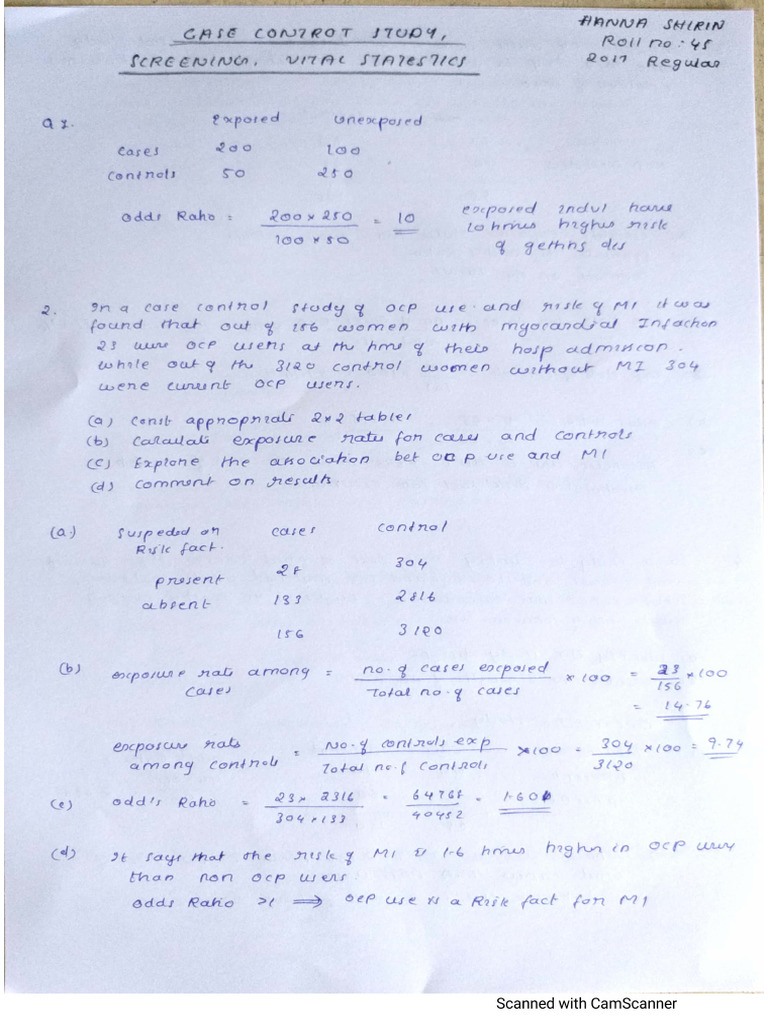 CASE CONTROT STUDY,
SCREENING, VITAL STATESTICS
HANNA SHIRIN
Roll no : 45
2017 Regular
Q 1. Exposed Unexposed
Cases 200 100
Controls 50 250
Odds Raho = 200 × 250 / 100 × 50 = 10
exposed indvl have
10 hmes higher risk
of getting des
2. In a case control study of OCP use and risk of MI it was
found that out of 156 women with myocardial Infachon
23 were OCP users at the hme of theis hosp admission.
while out of the 3120 control women without MI 304
were current OCP users.
(a) Const appropriate 2×2 tables
(b) Calculate exposure rate for cases and controls
(c) Explore the association bet OCP use and MI
(d) Comment on results
(a.) Suspected or cases control
Risk fact.
present 23 304
absent 133 2816
156 3120
(b) exposure rate among cases = no. of cases exposed / Total no. of cases × 100 = 23 / 156 × 100
= 14.76
exposure rate among controls = No. of controls exp / Total no. of controls × 100 = 304 / 3120 × 100 = 9.74
(c) odd's Raho = 23 × 2316 / 304 × 133 = 64768 / 40432 = 1.601
(d) It says that the risk of MI is 1.6 hmes higher in OCP users
than non OCP users
Odds Raho >1 ⟹ OCP use is a Risk fact for MI
Scanned with CamScanner